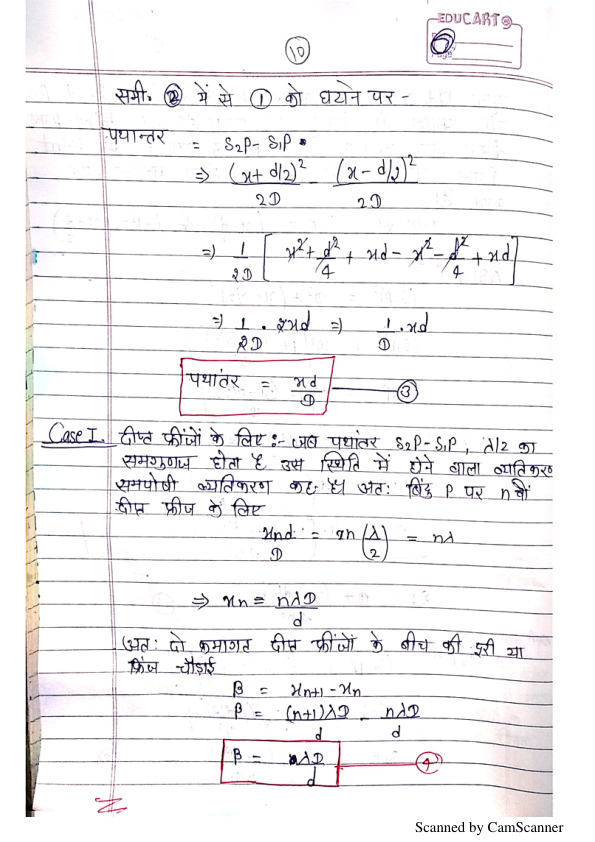 EDUCART
10
समी. ② में से ① को घटाने पर -
पथान्तर = S₂P - S₁P
⇒ (x + d/2)²/2D - (x - d/2)²/2D
⇒ 1/2D [x² + d²/4 + xd - x² - d²/4 + xd]
⇒ 1/2D · 2xd ⇒ 1/D · xd
पथांतर = xd/D ③
Case I. दीप्त फ्रींजों के लिए :- जब पथांतर S₂P - S₁P, λ/2 का
समगुणज होता है उस स्थिति में होने वाला व्यतिकरण
समपोषी व्यतिकरण कह: है। अत: बिंदु P पर n वीं
दीप्त फ्रींज के लिए
xnd/D = 2n(λ/2) = nλ
⇒ xn = nλD/d
अत: दो क्रमागत दीप्त फ्रींजों के बीच की दूरी या
फ्रिंज चौड़ाई
β = xn+1 - xn
β = (n+1)λD/d - nλD/d
β = λD/d ④
Scanned by CamScanner